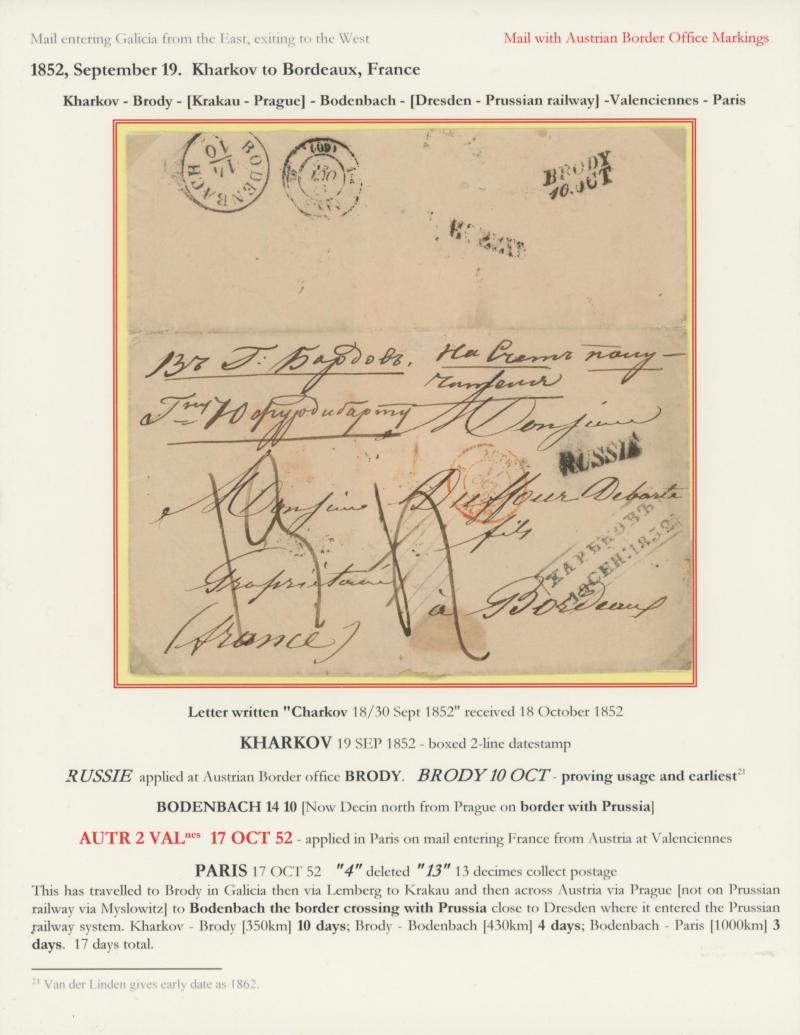 Mail entering Galicia from the East, exiting to the West
Mail with Austrian Border Office Markings
1852, September 19. Kharkov to Bordeaux, France
Kharkov - Brody - [Krakau - Prague] - Bodenbach - [Dresden - Prussian railway] -Valenciennes - Paris
BODENBACH
14
10
(60)
BRODY
10.OCT
RUSSIE
Въ Г: Бордовъ. На Счетъ полу-
чателя
Гну Юфурдибарту
Monsieur
RUSSIE
AUTR
17
OCT
Monsieur Duffour Debarte
fils
ХАРЬКОВЪ
19 СЕН: 1852
Propriétaire
à Bordeaux
(france)
13
4
Letter written "Charkov 18/30 Sept 1852" received 18 October 1852
KHARKOV 19 SEP 1852 - boxed 2-line datestamp
RUSSIE applied at Austrian Border office BRODY. BRODY 10 OCT - proving usage and earliest21
BODENBACH 14 10 [Now Decin north from Prague on border with Prussia]
AUTR 2 VALnes 17 OCT 52 - applied in Paris on mail entering France from Austria at Valenciennes
PARIS 17 OCT 52 "4" deleted "13" 13 decimes collect postage
This has travelled to Brody in Galicia then via Lemberg to Krakau and then across Austria via Prague [not on Prussian
railway via Myslowitz] to Bodenbach the border crossing with Prussia close to Dresden where it entered the Prussian
railway system. Kharkov - Brody [350km] 10 days; Brody - Bodenbach [430km] 4 days; Bodenbach - Paris [1000km] 3
days. 17 days total.
21 Van der Linden gives early date as 1862.